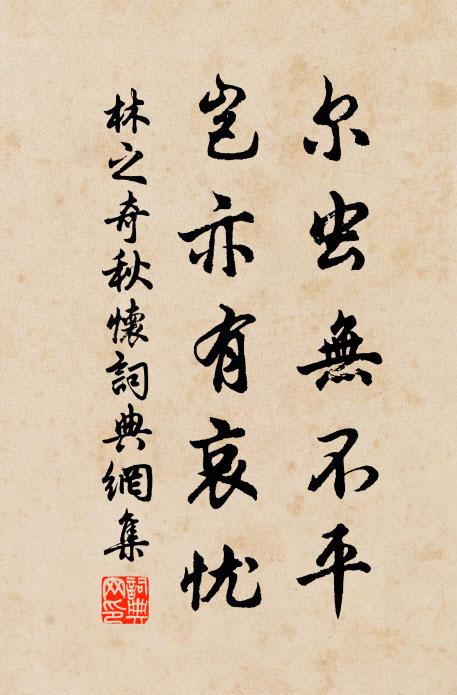 尔虫無不平
岂亦有哀忧
林之奇秋懷詞典網集
詞典网印